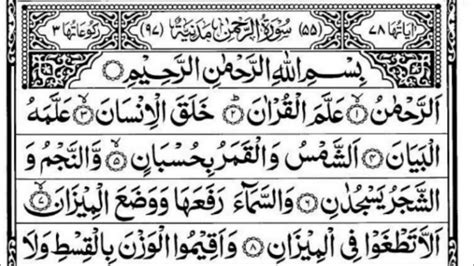 اٰيَاتُهَا ٧٨ (٥٥) سُوْرَةُ الرَّحْمٰنِ مَدَنِيَّةٌ (٩٧) رُكُوْعَاتُهَا ٣
بِسْمِ اللّٰهِ الرَّحْمٰنِ الرَّحِيْمِ
اَلرَّحْمٰنُ ۙ﴿١﴾ عَلَّمَ الْقُرْاٰنَ ؕ﴿٢﴾ خَلَقَ الْاِنْسَانَ ۙ﴿٣﴾ عَلَّمَهُ
الْبَيَانَ ﴿٤﴾ اَلشَّمْسُ وَالْقَمَرُ بِحُسْبَانٍ ۪﴿٥﴾ وَّالنَّجْمُ وَ
الشَّجَرُ يَسْجُدٰنِ ﴿٦﴾ وَالسَّمَآءَ رَفَعَهَا وَوَضَعَ الْمِيْزَانَ ۙ﴿٧﴾
اَلَّا تَطْغَوْا فِي الْمِيْزَانِ ﴿٨﴾ وَاَقِيْمُوا الْوَزْنَ بِالْقِسْطِ وَلَا